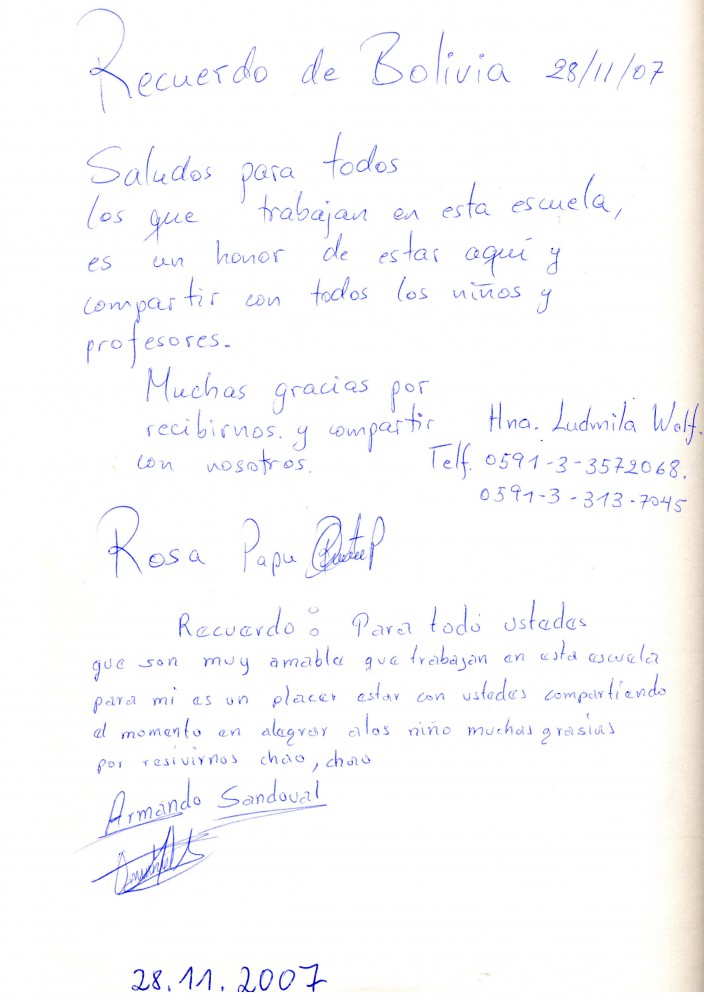 Recuerdo de Bolivia 28/11/07
Saludos para todos
los que trabajan en esta escuela,
es un honor de estar aquí y
compartir con todos los niños y
profesores.
Muchas gracias por
recibirnos. y compartir
con nosotros.
Hna. Ludmila Wolf.
Telf. 0591-3-3572068.
0591-3-313-7045
Rosa Papu
Recuerdo: Para todo ustedes
que son muy amable que trabajan en esta escuela
para mi es un placer estar con ustedes compartiendo
el momento en alegrar alos niño muchas grasias
por resivirnos chao, chao
Armando Sandoval
28.11.2007